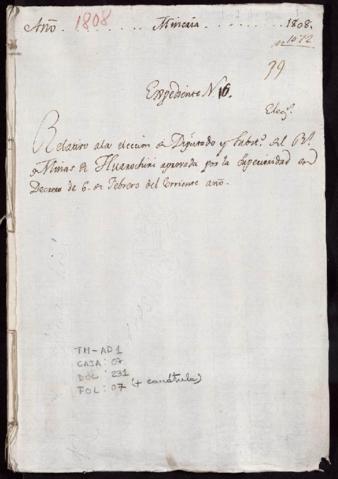 Año. 1808 . . . . . . . Mineria . . . . . . . 1808.
nº 1072
99
Expediente N 16.
Elecⁿ.
Relativo ala eleccion de Diputado y Subsᵗᵒ. del Rˡ.
de Minas de Huarochiri aprovada por la Superioridad en
Decreto de 6. de Febrero del Corriente año.
TM-AD1
CAJA: 07
DOC: 231
FOL: 07 (+ carátula)